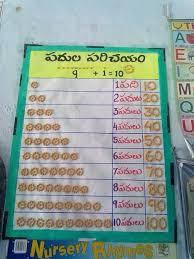 పదుల పరిచయం
9 + 1 = 10
1 పది 10
2 పదులు 20
3 పదులు 30
4 పదులు 40
5 పదులు 50
6 పదులు 60
7 పదులు 70
8 పదులు 80
9 పదులు 90
10 పదులు 100
Nursery Rhymes